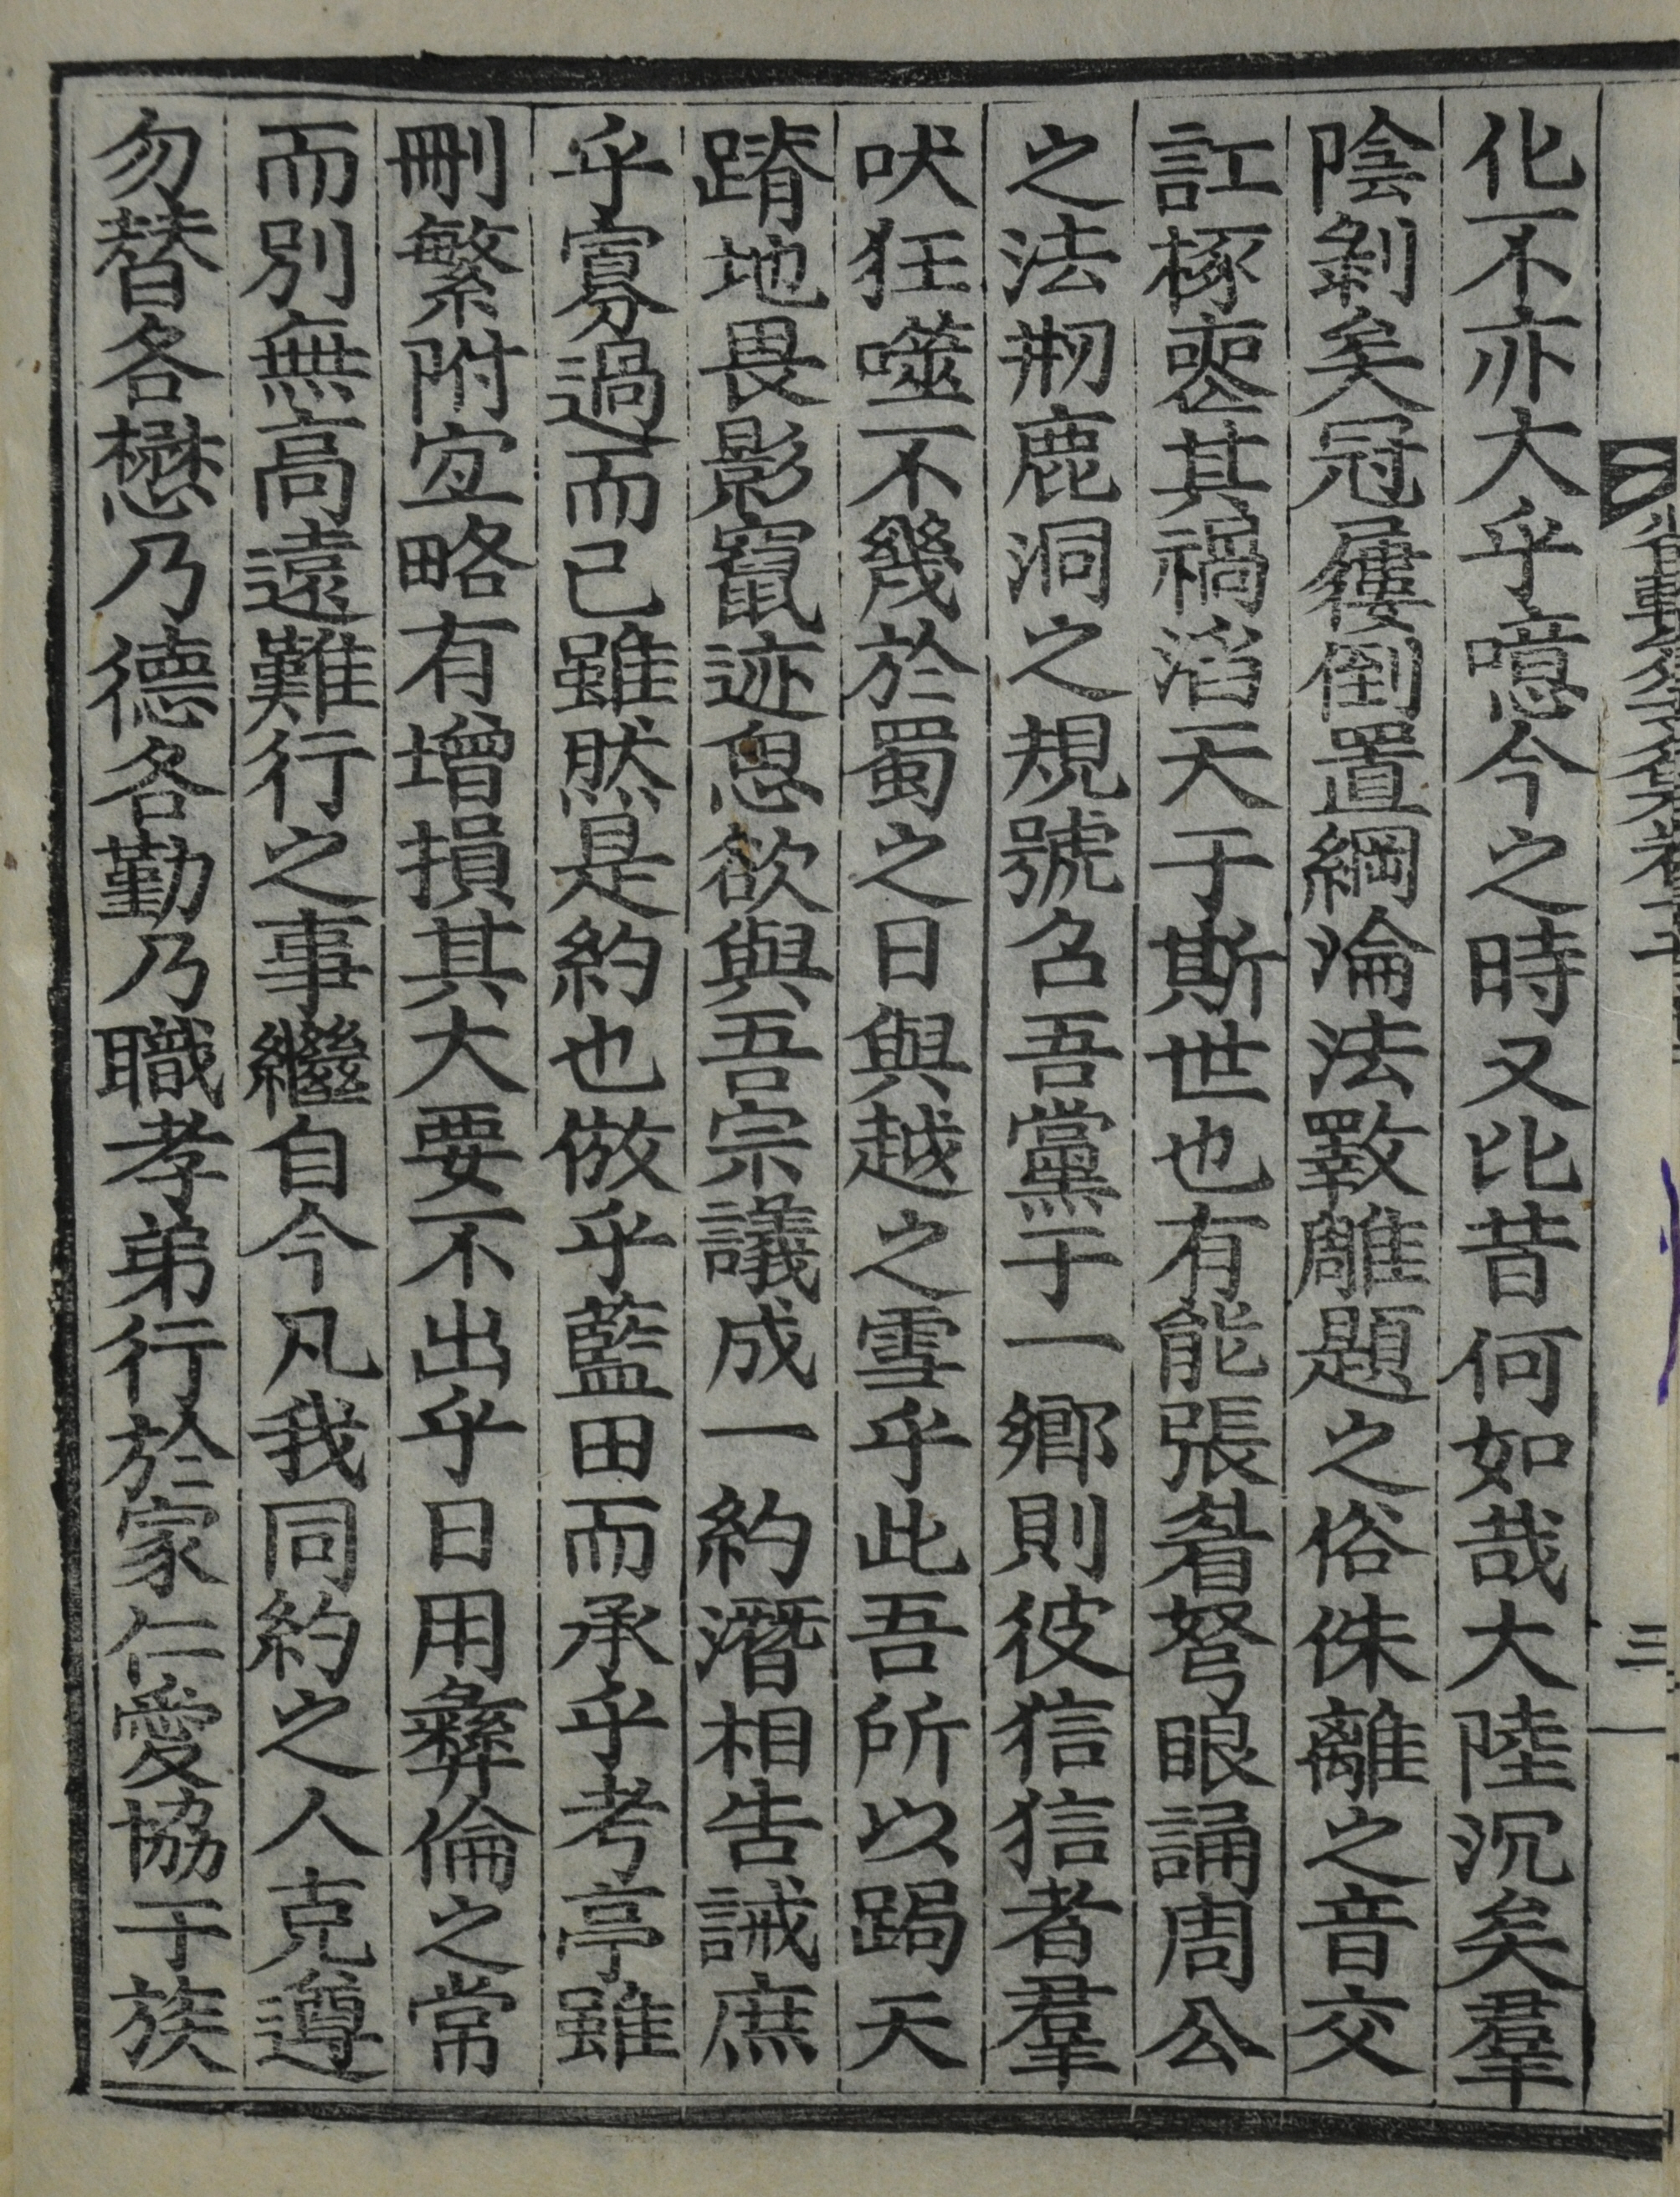 化不亦大乎噫今之時又比昔何如哉大陸沉矣羣
陰剝矣冠屨倒置綱淪法斁雕題之俗侏離之音交
訌椓喪其禍滔天于斯世也有能張着弩眼誦周公
之法剏鹿洞之規號召吾黨于一鄉則彼狺狺者羣
吠狂噬不幾於蜀之日與越之雪乎此吾所以跼天
蹐地畏影竄迹思欲與吾宗議成一約潛相告誡庶
乎寡過而已雖然是約也倣乎藍田而承乎考亭雖
刪繁附宜略有增損其大要不出乎日用彝倫之常
而別無高遠難行之事繼自今凡我同約之人克遵
勿替各懋乃德各勤乃職孝弟行於家仁愛協于族
三